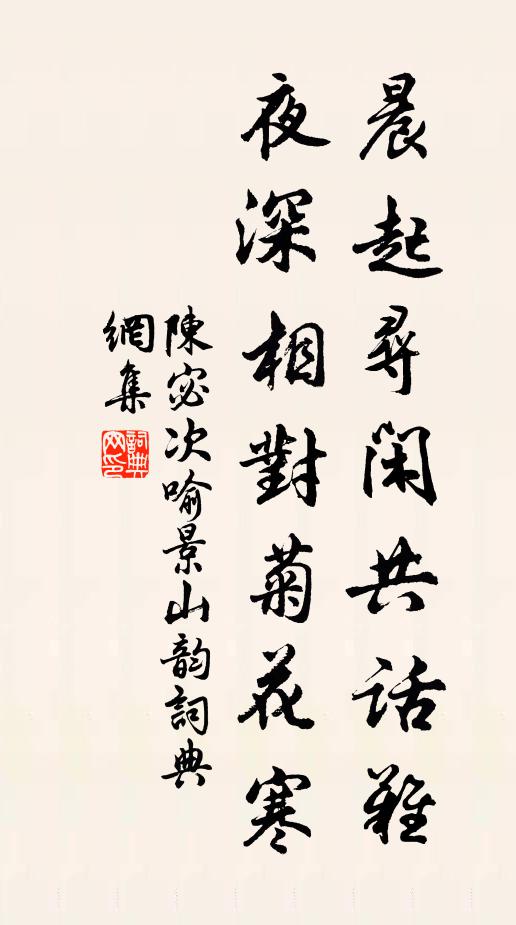 晨起尋閑共話難
夜深相對菊花寒
陳宓次喻景山韵詞典
網集
詞典網印